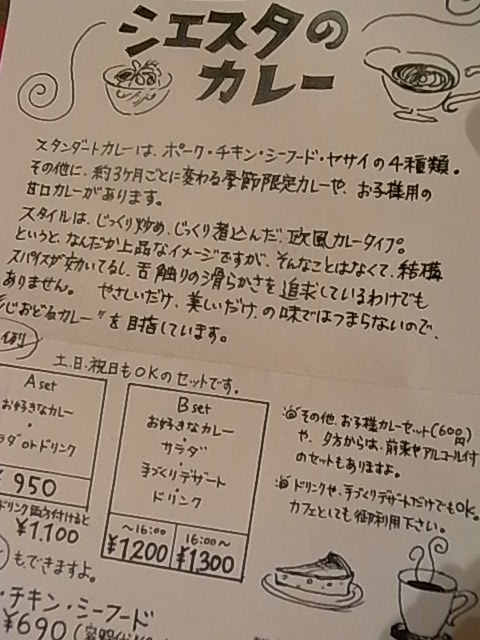 シエスタの
カレー
スタンダートカレーは、ポーク・チキン・シーフード・ヤサイの4種類。
その他に、約3ヶ月ごとに変わる季節限定カレーや、お子様用の
甘口カレーがあります。
スタイルは、じっくり炒め、じっくり煮込んだ、欧風カレータイプ。
というと、なんだか上品なイメージですが、そんなことはなくて、結構
スパイスが効いてるし、舌触りの滑らかさを追求しているわけでも
ありません。 やさしいだけ、美しいだけ、の味ではつまらないので、
おどるカレー" を目指しています。
例
土、日、祝日もOKのセットです。
A set
お好きなカレー
・
サラダorドリンク
¥950
ドリンク両方付けると
¥1,100
B set
お好きなカレー
・
サラダ
・
手づくりデザート
・
ドリンク
~16:00
¥1200
16:00~
¥1300
その他、お子様カレーセット(600円)
や、夕方からは、前菜やアルコール付
のセットもありますよ。
ドリンクや、手づくりデザートだけでもOK。
カフェとしても御利用下さい。
もできますよ。
・チキン・シーフード
¥690